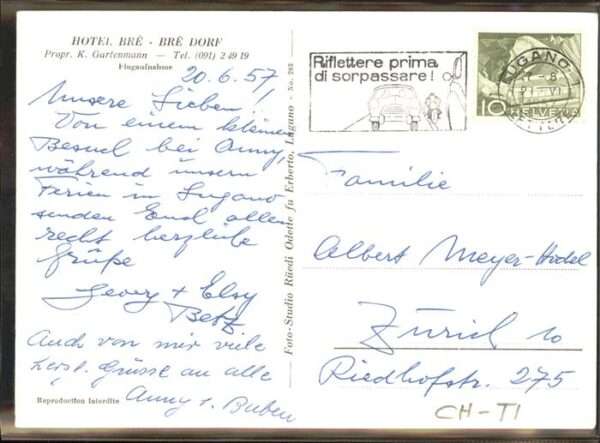 HOTEL BRÉ - BRÉ DORF
Propr. K. Gartenmann — Tel. (091) 2 49 19
Flugaufnahme
20.6.57
Unsere Lieben!
Von einem kleinen
Besuch bei Anny,
während unsern
Ferien in Lugano
senden Euch allen
recht herzliche
Grüße
Georg + Elsy
Betz.
Auch von mir viele
herzl. Grüsse an alle
Anny s. Buben
Reproduction Interdite
Foto-Studio Rüedi Odette fu Erberto, Lugano - No. 282
Riflettere prima
di sorpassare!
LUGANO 1
HELVETIA
10
Familie
Albert Meyer-Hodel
Zürich 10
Riedhofstr. 275
CH-TI